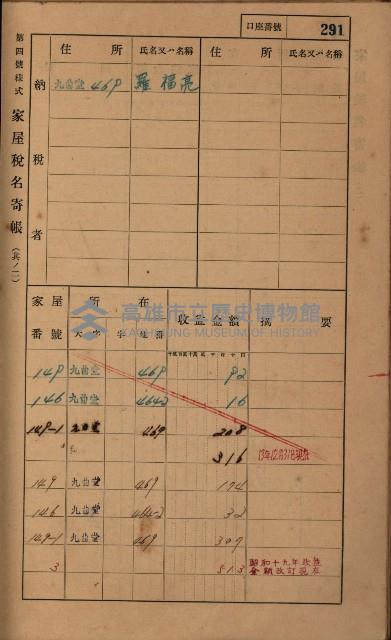 口座番號 291
第四號樣式 家屋稅名寄帳 (其ノ二)
納稅者
住所 氏名又ハ名稱 住所 氏名又ハ名稱
九曲堂 469 羅福亮
家屋番號 家屋所在 大字 字 地番 收益金額 摘要
149 九曲堂 469 92
146 九曲堂 464-2 16
149-1 九曲堂 469 208
316 13年12月31日現在
149 九曲堂 469 174
146 九曲堂 464-2 32
149-1 九曲堂 469 307
3 513 昭和十九年改正
金額改訂現在
高雄市立歷史博物館
KAOHSIUNG MUSEUM OF HISTORY